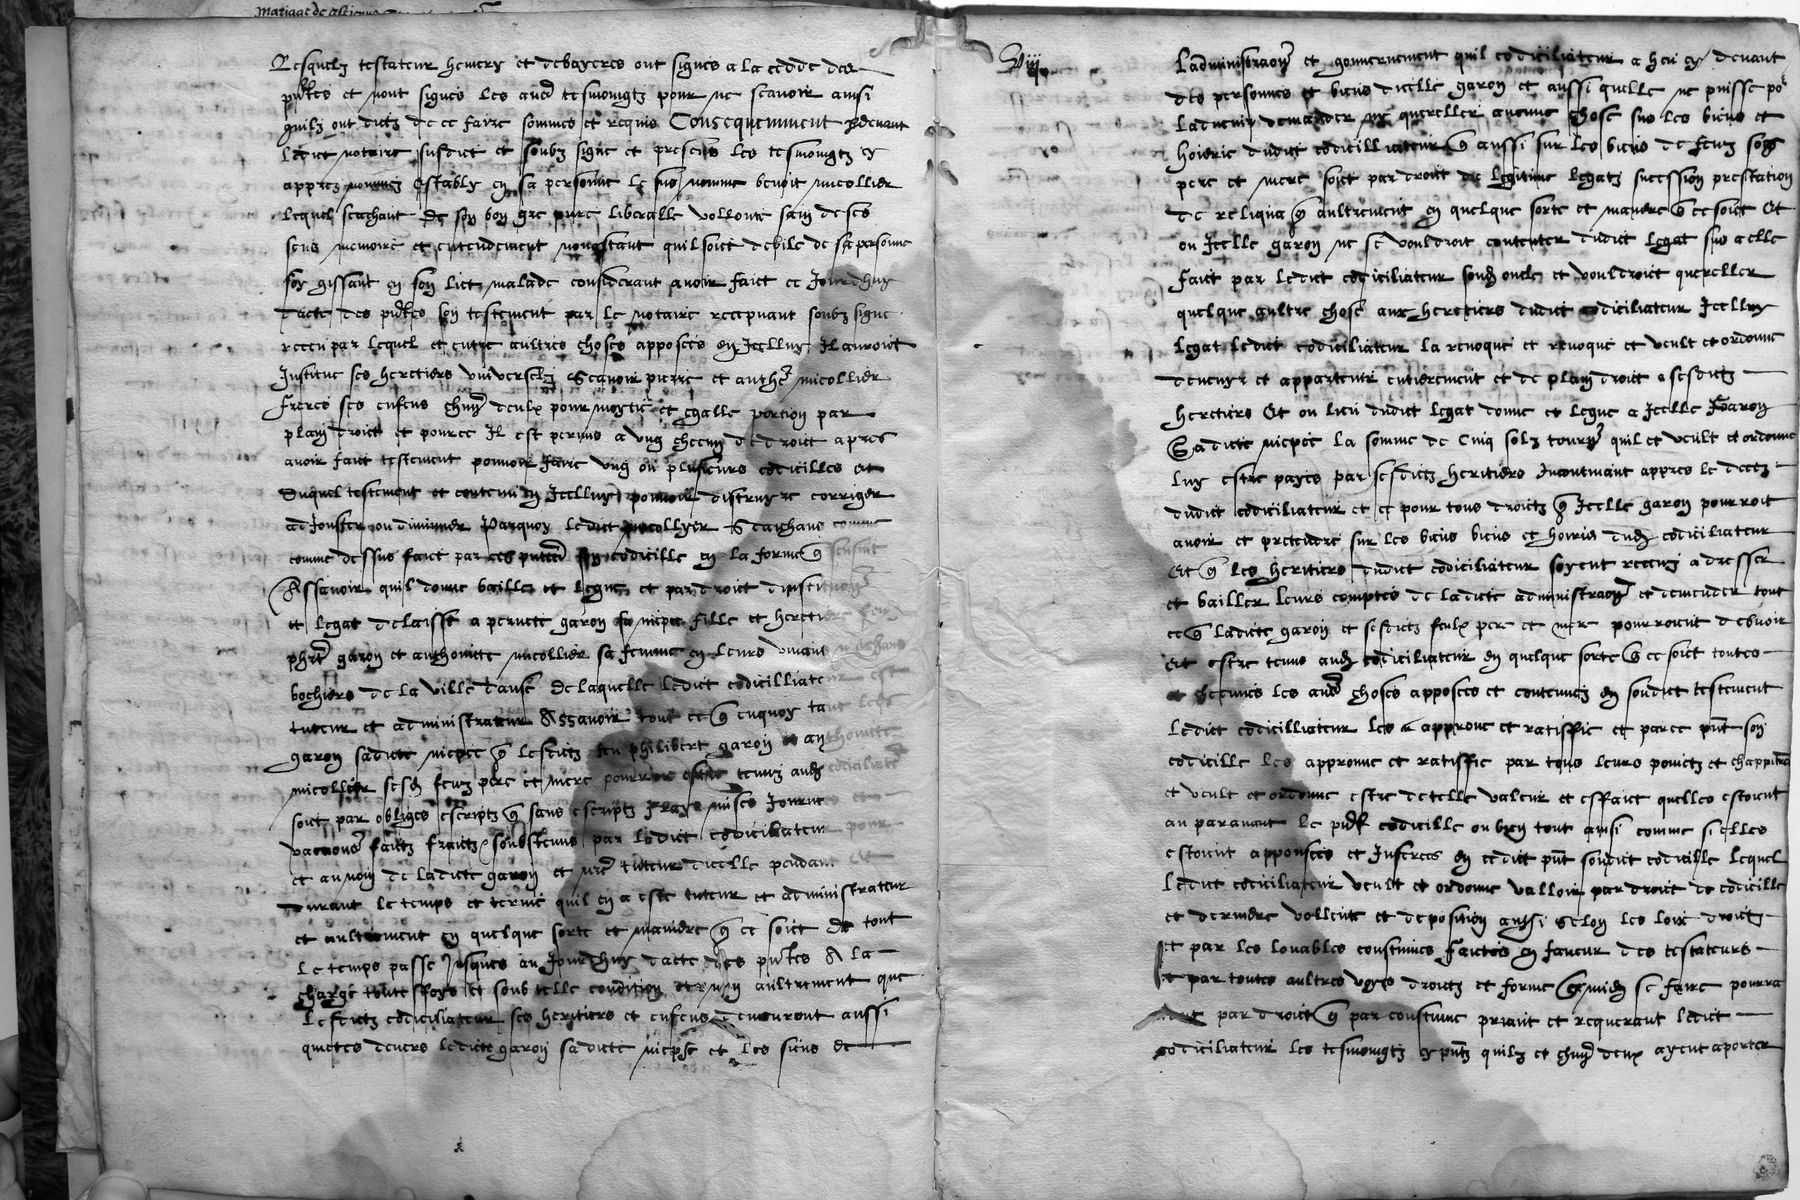 Lesquelz testateur hemery et debayeres ont signés a la cedde des
pntes et nont signés les aues tesmoingtz pour ne scavoir ainsi
quilz ont dictz de ce faire sommes et requis Consequemment pdevant
ledict notaire susdict et soubz signe et presens les tesmoingtz cy
appres nommez estably en sa personne le sus nomme benoit nicollier
lequel scachant de son bon gre pure liberalle vollonte sain de ses
sens memoire et entendement nonostant quil soict debile de sa personne
soy gissant en son lict malade considerant avoir faict ce Jourdhuy
dacte des pntes son testement par le notaire recepvant soubz signe
receu par lequel et entre aultres choses apposées en Jcelluy Jl auroit
Jnstitue ses heretiers universelz Scavoir pierre et anthe nicollier
freres ses enfens chun deulx pour moytie et egalle portion par
plain droict et pource Jl est permis a ung checun de droict apres
avoir faict testement pouvoir faire ung ou plusieurs codicilles et
duquel testement et contenu en Jcelluy pouvoir distruyre corriger
adJouster ou diminuer Parquoy ledict nicollyer Scachant comme
comme dessus faict par ces pntes son codicille en la forme q sensuit
Assavoir quil donne baille et legue et par droict dinstituon
et legat delaisse a pernete garon sa niepce fille et heretiere feu
phirt garon et anthoinete nicollier sa femme en leurs vivant
bochiers de la ville danse de laquelle ledict codicilliateur est
tuteur et administrateur Assavoir tout ce q enquoy tant lad
garon sadicte niepce q lesdictz feu philibert garon et anthoinete
nicollier sesd feuz pere et mere pourroient estre tenuz aud codiciliater
soit par obliges escriptz q sans escriptz frays mises Journees et
vacaons faictz fraictz soubstenus par ledict codiciliateur pour
et au nom de ladicte garon et tuteur dicelle pendant et
durant le temps et terme quil en a este tuteur et administrateur
et aultrement en quelque sorte et maniere q ce soict de tout
le temps passe jusques au Jourdhuy dacte des pntes A la
charge toutesfoys et soubs telle condition et non aultrement que
lesdictz codiciliateur ses heritiers et enfens demouront aussi
quictes devers ladicte garon sadicte niepce et les siens de
Viij
Ladministraon et gouvernement quil codiciliateur a heu cy devant
des personnes et biens dicelle garon et aussi quelle ne puisse po
ladvenir demander ne quereller aucune chose sus les biens et
hoierie dudict codicilliateur q aussi sur les biens de feuz sesd
pere et mere soit par droict de legitime legatz succession prestation
de reliqua q aultrement en quelque sorte et maniere q ce soict Et
ou Jcelle garon ne se vouldroit contenter dudict legat sus a elle
faict par ledict codiciliateur sond oncle et vouldroict quereller
quelque aultre chose aux heretiers dudict codiciliateur Jcelluy
legat ledict codiciliateur la revoque et revoque et veult et ordonne
devenir et appartenir entierement et de plain droict a sesdictz
heretiers Et ou lieu dudict legat donne et legue a Jcelle Garon
Sadicte niepce la somme de Cinq solz tourn quil et veult et ordonne
luy estre payes par sesdictz heritiers Jncontinant appres le dectz
dudict codiciliateur et ce pour tous droictz q Jcelle garon pourroit
avoir et pretendre sur les biens biens et hoirie dud codiciliateur
Et q les heritiers dudict codiciliateur soyent receuz a dresser
et bailler leurs comptes de ladicte administraon et demender tout
ce q ladicte garon et sesdictz feulx pere et mere pourroient debvoir
et estre tenus aud codiciliateur en quelque sorte q ce soict toutes
et checunes les aues choses apposees et contenues en sondict testement
ledict codicilliateur les a approuve et ratiffie et par ce pnt son
codicille les approuve et ratiffie par tous leurs poinctz et chappitres
et veult et ordonne estre de telle valeur et effaict quelles estoient
au paravant le pnt codicille ou bien tout ainsi comme si elles
estoient apponsées et Jnserees en cedict pnt sondict codicille lequel
ledict codiciliateur veult et ordonne valloir par droict de codicille
et derniere vollente et deposition aussi selon les loix droictz
et par les louables coustumes faictes en faveur des testateurs
et par toutes aultres voyes droictz et forme q mieulx se faire pourra
par droict q par coustume priant et requerant ledict
codiciliateur les tesmoingtz cy pntz quilz et chun deux ayent aporter